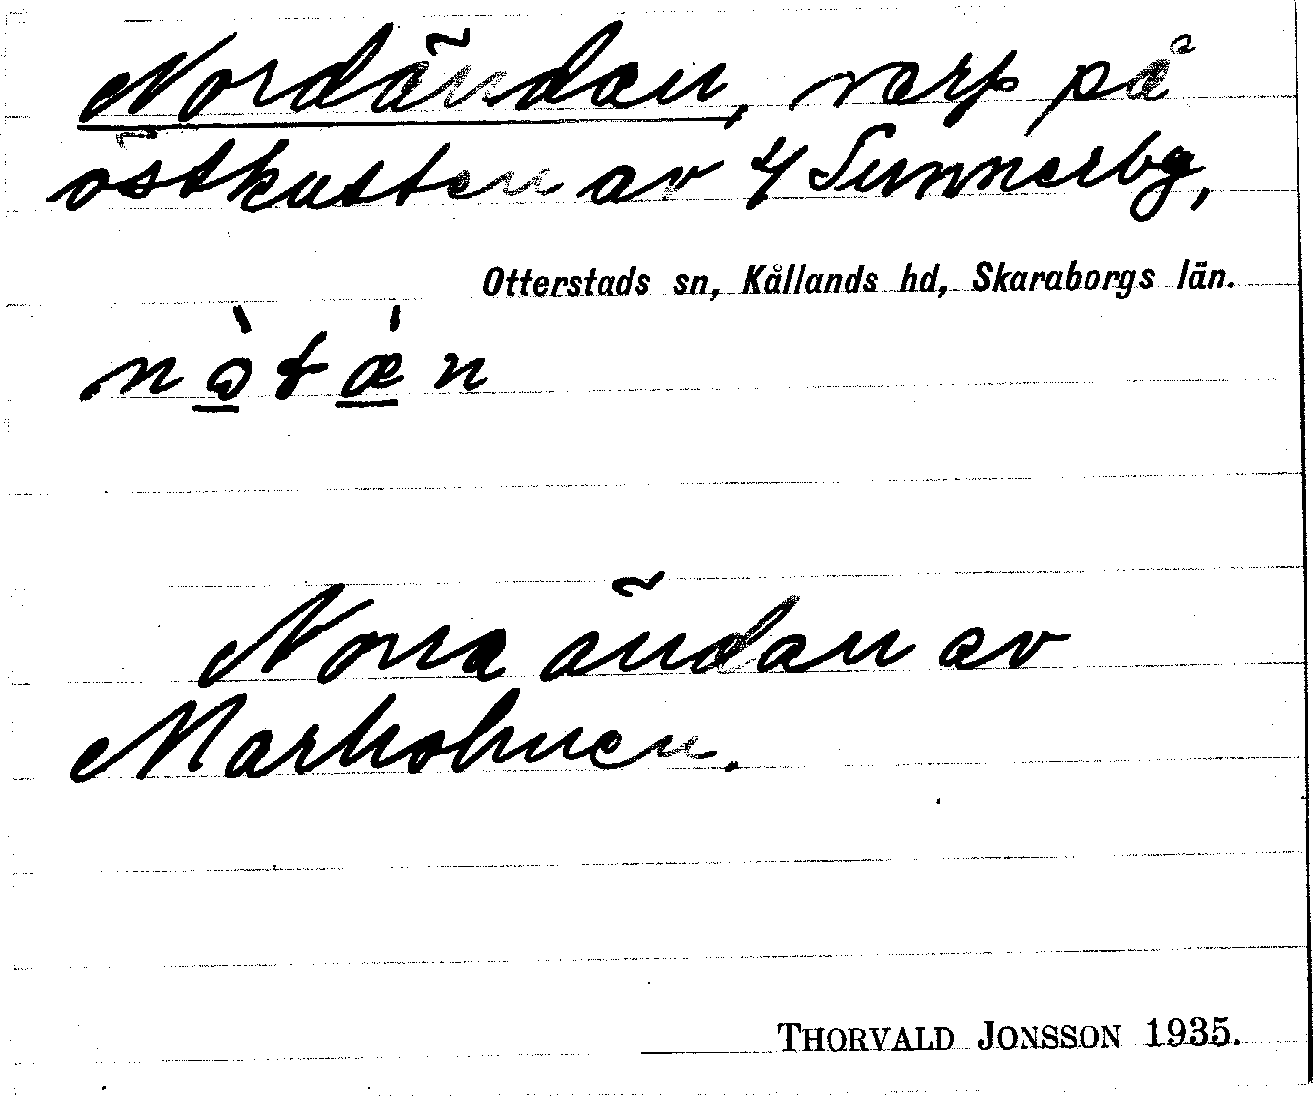 Nordändan, varp på
östkusten av 4 Sunnerbg,
Otterstads sn, Kållands hd, Skaraborgs län.
Norra ändan av
Marholmen.
THORVALD JONSSON 1935.